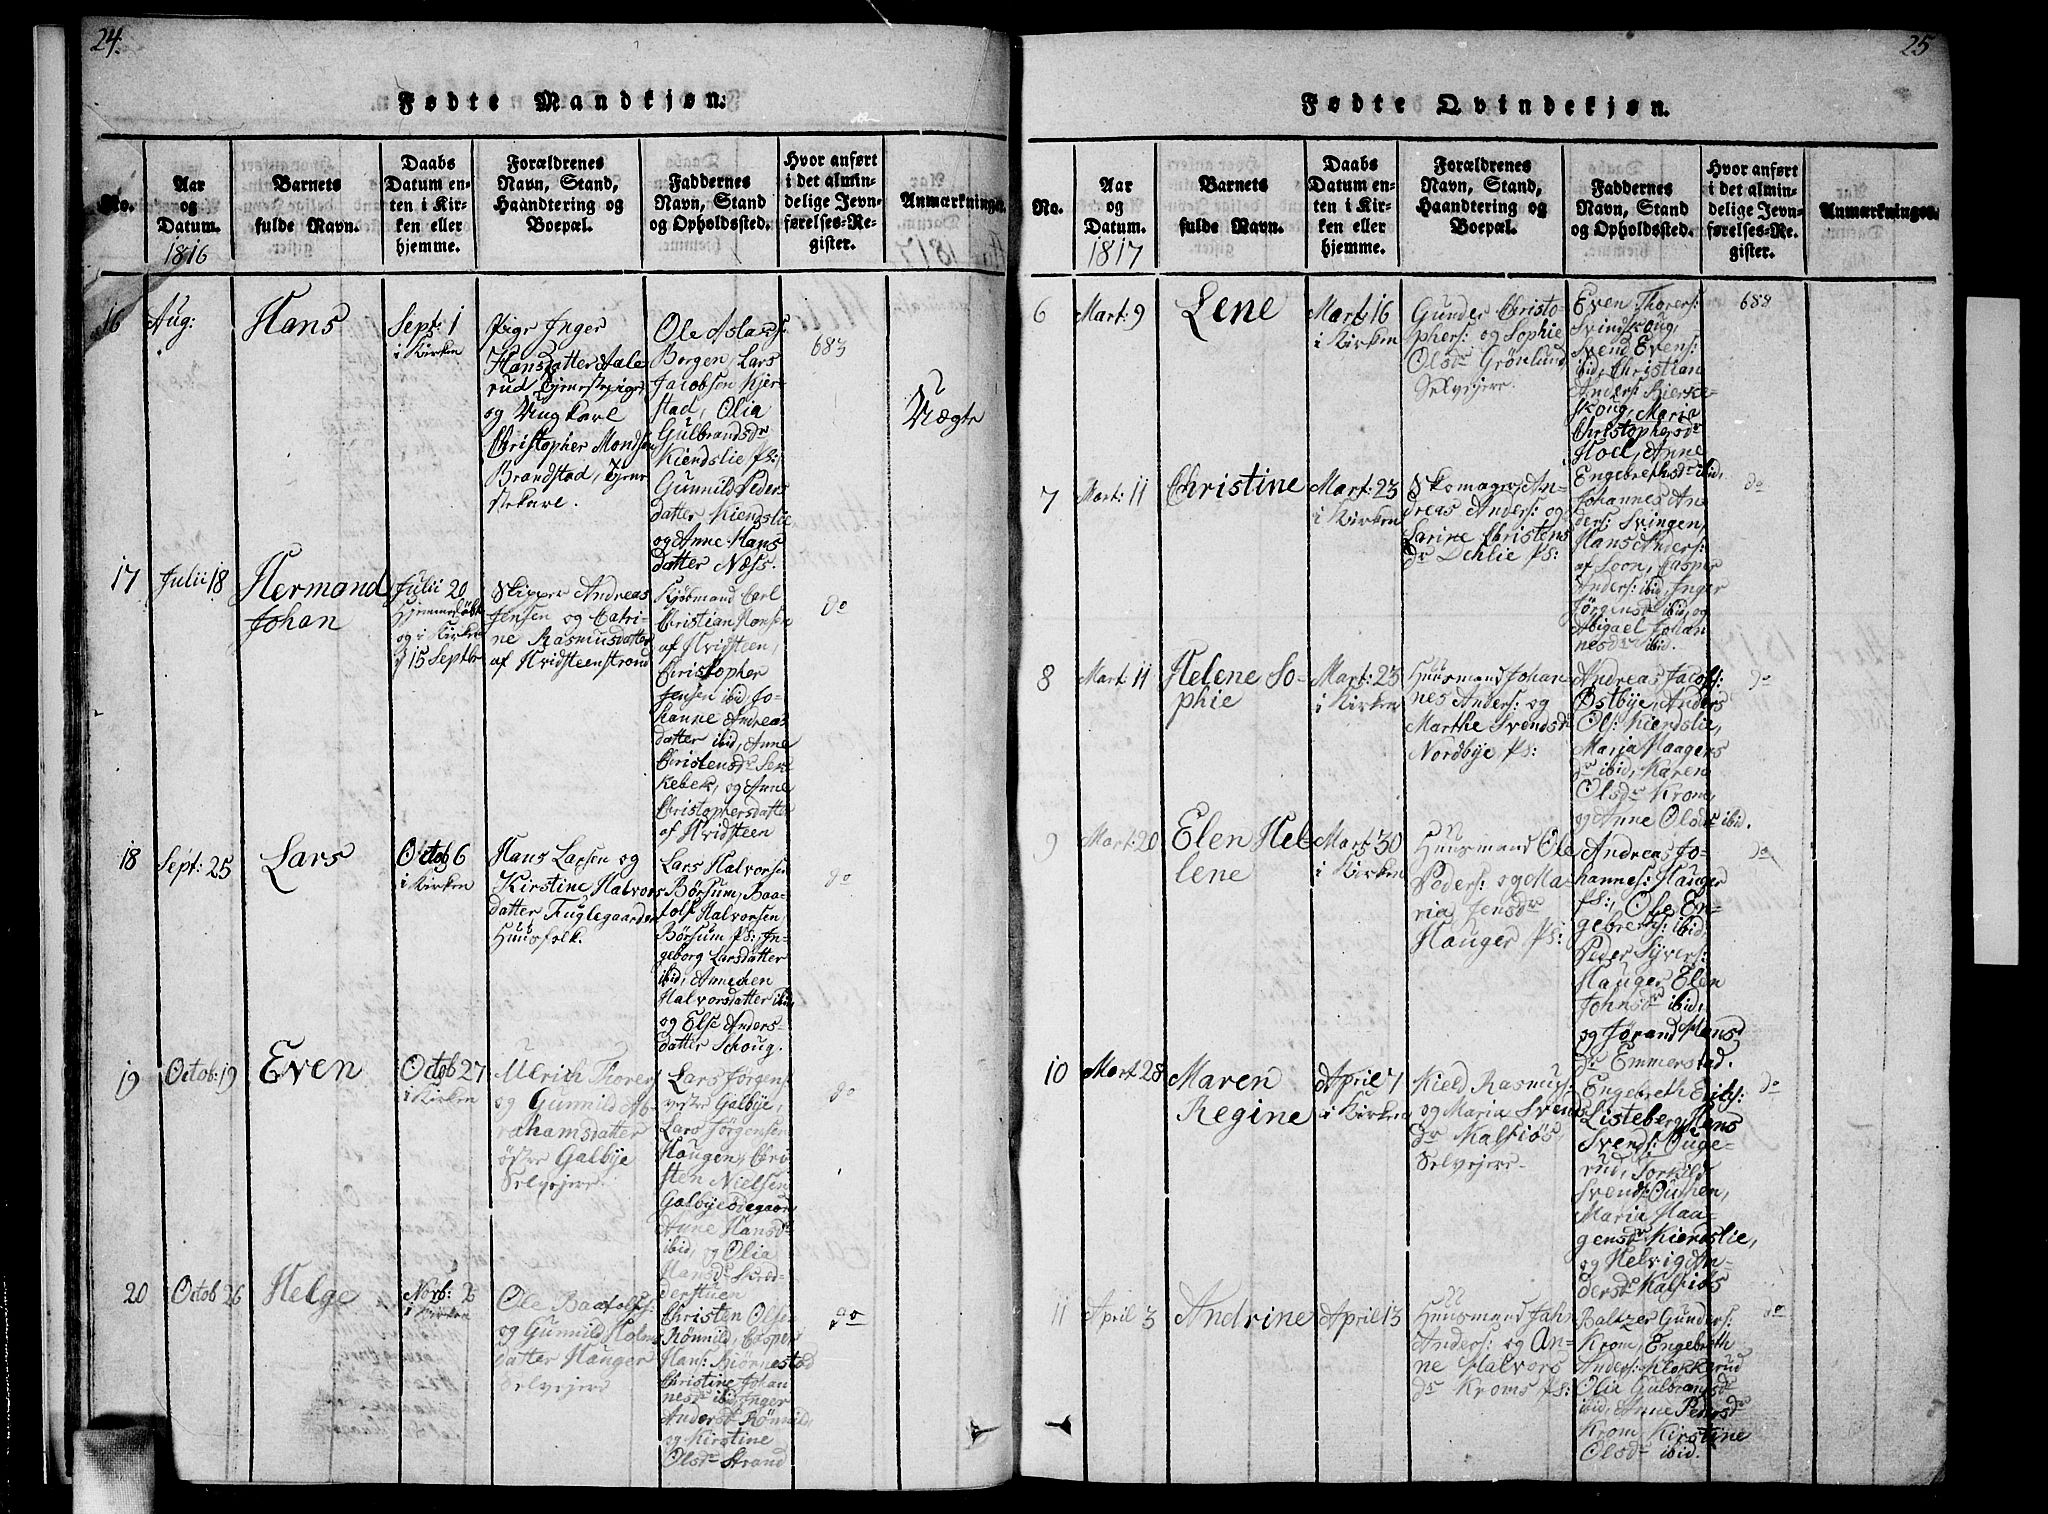 24.
Fødte Mandkjøn.
No.
Aar
og
Datum.
1816
Barnets
fulde Navn.
Daabs
Datum en-
ten i Kir-
ken eller
hjemme.
Forældrenes
Navn, Stand,
Haandtering og
Boepæl.
Faddernes
Navn, Stand
og Opholdssted.
Hvor anført
i det almin-
delige Jevn-
førelses-Re-
gister.
Anmærkninger.
16
Aug:
Hans
Sept: 1
i Kirken
Pige Inger
Hansdatter Aale
rud Tjenestepige
og Ungkarl
Christopher Mondsen
Brandstad, Tjene
stekarl.
Ole Aslags:
Bergen, Lars
Jacobsen Kjer
stad, Olia
Gulbrandsdr
Kiendslie Ps:
Gunnild Peders
datter Kiendslie
og Anne Hans
datter Næss.
683
Uægte
17
Julii 18
Hermand
Johan
Julii 20
Hjemmedøbt
og i Kirken
15 Septbr
Skipper Andreas
Jensen og Catri-
ne Rasmusdatter
af Hvidsteenstrand
Kjøbmand Carl
Christian Hansen
af Hvidsteen,
Christopher
Jensen ibid, Jo-
hanne Andreas
datter ibid, Anne
Christensdr Sek
kebek, og Anne
Christophersdatter
af Hvidsteen
do
18
Sept: 25
Lars
Octob 6
i Kirken
Hans Larsen og
Kirstine Halvors
datter Fuglegaarden
Huusfolk.
Lars Halvorsen
Børsum, Baa-
tolf Halvorsen,
Børsum Ps:, In-
geborg Larsdatter
ibid, Annichen
Halvorsdatter ibid,
og Else Anders-
datter Schoug.
do
19
Octob: 19
Even
Octob 27
i Kirken
Ulrich Thorers
og Gunnild Ab-
rahamsdatter
øster Galbye
Selvejere.
Lars Jørgens:
vester Galbye,
Lars Jørgensen
Haugen, Chri
sten Nielsen
Galbyeødegaard
Anne Hansdr
ibid, og Olia
Hansdr Skræd-
derstuen
do
20
Octob 26
Helge
Novb: 2
i Kirken
Ole Baatolfs:
og Gunnild Holm
datter Hauger
Selvejere
Christen Olsen
Rønnild, Casper
Hans: Bjørnestad
Christine Johan
nesdr ibid, Inger
Andersdr Rønnild,
og Kirstine
Olsdr Strand
do
25
Fødte Qvindekjøn.
No.
Aar
og
Datum.
1817
Barnets
fulde Navn.
Daabs
Datum en-
ten i Kir-
ken eller
hjemme.
Forældrenes
Navn, Stand,
Haandtering og
Boepæl.
Faddernes
Navn, Stand
og Opholdssted.
Hvor anført
i det almin-
delige Jevn-
førelses-Re-
gister.
Anmærkninger.
6
Mart: 9
Lene
Mart: 16
i Kirken
Gunder Christo-
phers: og Sophie
Olsdr Grønlund
Selvejere.
Even Thorers:
Svindskoug,
Svend Evens:
ibid, Christian
Anders: Bjerke-
skoug, Maria
Christophersdr
Hoel, Anne
Engebrethsdr ibid,
688
7
Mart: 11
Christine
Mart: 23
i Kirken
Skomager An-
dreas Anders: og
Sarine Christens
dr Dehlie Ps:
Johannes An
ders: Svingen,
Hans Anders:
af Soon, Casper
Anders: ibid, Inger
Jørgensdr ibid, og
Abigael Johan-
nesdr ibid.
do
8
Mart: 11
Helene So-
phie
Mart: 23
i Kirken
Huusmand Johan
nes Anders: og
Marthe Svendsdr
Nordbye Ps:
Andreas Jacobs:
Østbye, Anders
Ols: Kiendslie,
Maria Haagens
dr ibid, Karen
Olsdr Krom,
og Anne Olsdr ibid.
do
9
Mart: 20
Elen Hel-
lene
Mart 30
i Kirken
Huusmand Ole
Peders: og Ma-
ria Jensdr
Hauger Ps:
Andreas Jo-
hannes: Hauger
Ps:, Ole En-
gebreths: ibid,
Peder Syvers:
Hauger, Elen
Johnsdr ibid,
og Jørand Hans
dr Emmerstad.
do
10
Mart 28
Maren
Regine
April 7
i Kirken
Kield Rasmus:
og Maria Svends
dr Kalsiøs,
Selvejere.
Engebreth Erichs:
Listeberg, Hans
Svends: Huge-
rud, Torkild
Svends: Ouhen,
Maria Haa-
gensdr Kiendslie,
og Helvig An-
dersdr Kalsiøs
do
11
April 3
Andrine
April 13
Huusmand Jah
Anders: og An-
ne Halvors
dr Kroms Ps:
Baltzer Gunders:
Krom, Engebreth
Anders: Klokkerud
Olia Gulbrandsdr
ibid, Anne Pedersdr
Krom, Kirstine
Olsdr ibid.
do